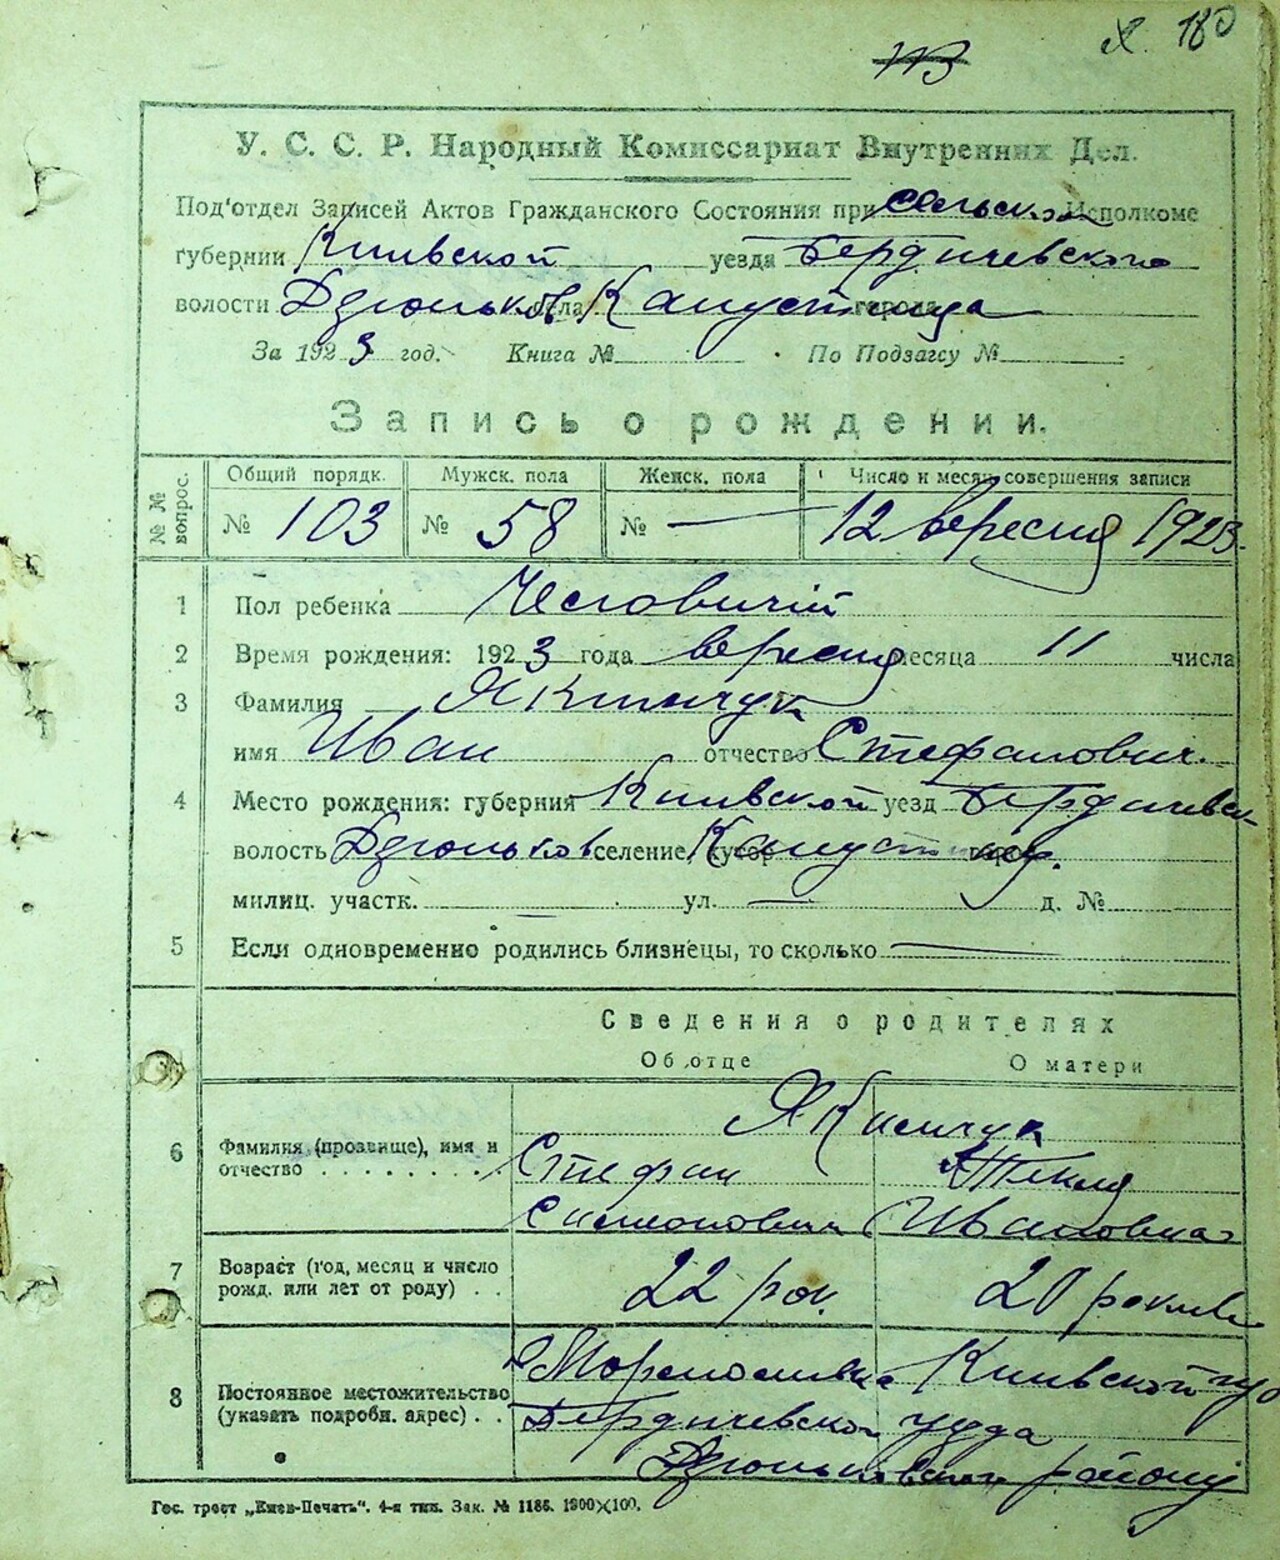 180
У. С. С. Р. Народный Комиссариат Внутренних Дел.
Под'отдел Записей Актов Гражданского Состояния при Сельском Исполкоме
губернии Киивской уезда Бердичевского
волости Дзюньков села Капустинца города
За 1923 год. Книга № По Подзагсу №
Запись о рождении.
№ № вопрос.
Общий порядк. Мужск. пола Женск. пола Число и месяц совершения записи
№ 103 № 58 № — 12 вересня 1923.
1 Пол ребенка Чесловичий
2 Время рождения: 1923 года вересня месяца 11 числа
3 Фамилия Якимчук
имя Иван отчество Стефанович.
4 Место рождения: губерния Киивской уезд Бердичевск
волость Дзюньков селение, хутор
милиц. участк. ул. — д. №
5 Если одновременно родились близнецы, то сколько —
Сведения о родителях
Об отце О матери
Якимчук
6 Фамилия (прозвище), имя и Стефан Текля
отчество Симонович Ивановна
7 Возраст (год, месяц и число
рожд. или лет от роду) . . 22 рок. 20 рокив
Киивской губ
8 Постоянное местожительство
(указать подробн. адрес) . . Бердичевской уезда
Дзюньковской району
Гос. трест „Киев-Печать". 4-я тип. Зак. № 1186. 1900×100.